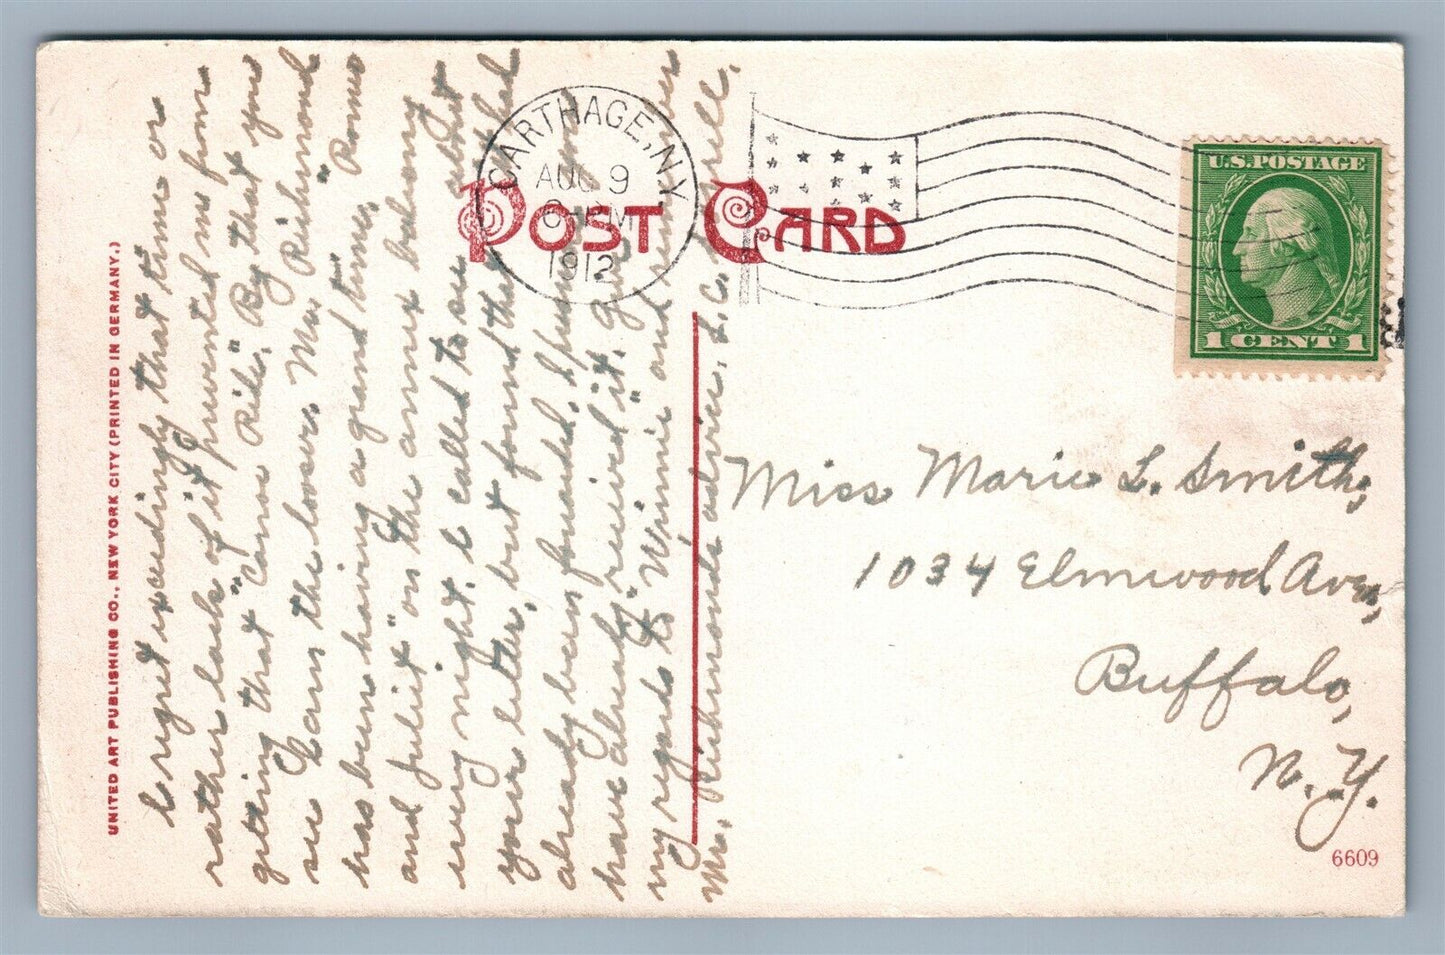 UNITED ART PUBLISHING CO., NEW YORK CITY (PRINTED IN GERMANY.)
I regret exceedingly that time or
rather lack of it prevented me from
getting that "Canoe Ride." By that you
see I am the looser. Mr. Richmond
has been having a grand time, "Romeo
and Juliet" on the annex balcony
every night. I called to see about
your letter, but found that it had
already been forwarded. I
have already received it.
my regards to Winnie and
Mr. Richmonds advice. L.C.
POST CARD
CARTHAGE, N.Y.
AUG 9
1912
U.S. POSTAGE
1 CENT 1
Miss Marie L. Smith,
1034 Elmwood Ave.,
Buffalo,
N.Y.
6609